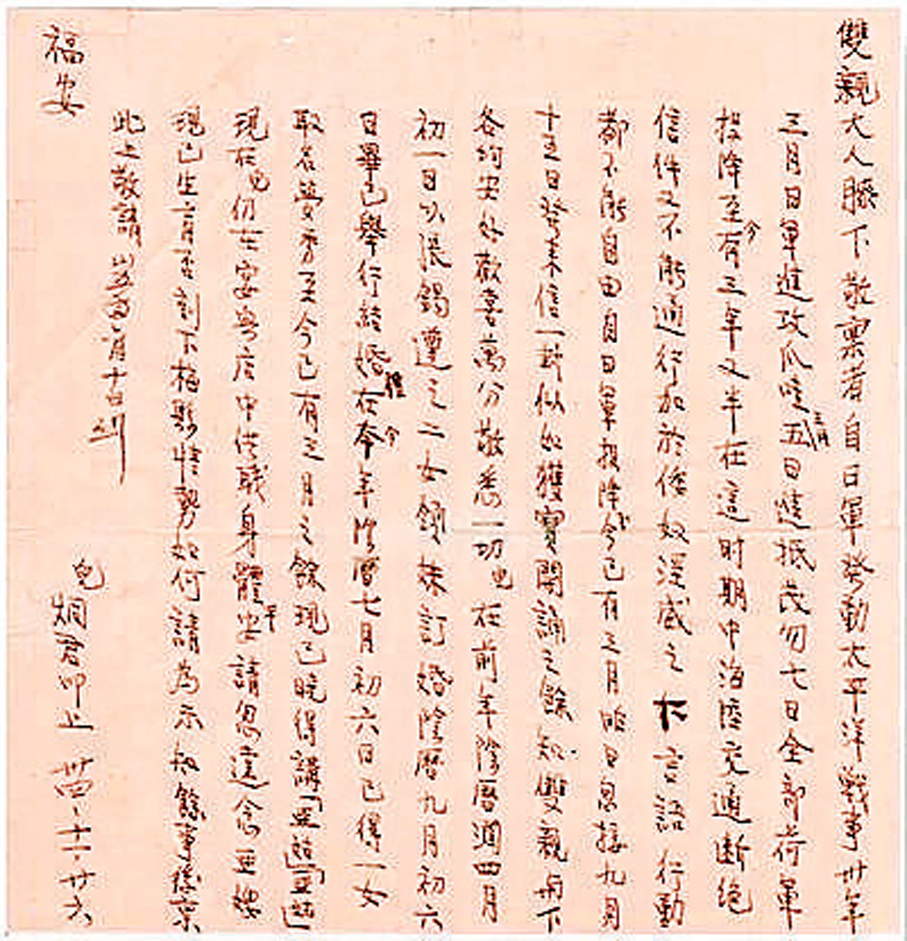 雙親大人膝下敬稟者自日軍發動太平洋戰事卅年
三月日軍進攻爪哇五日達抵茂勿七日全部荷軍
投降至今有三年又半在這时期中海陸交通断绝
信件又不能通行加於倭奴淫威之下言語行動
都不能自由自日軍投降今已有三月昨日忽接九月
十五日發来信一封似如獲寶開誦之餘知雙親舟下
各均安好歡喜萬分敬悉一切 在前年陰曆潤四月
初一日以張錫遵之二女領妹訂婚陰曆九月初六
日畢已舉行結婚 在今年陰曆七月初六日已得一女
取名 至今已有三月之餘現已晓得講
現在 仍在 店中供職身體平安請勿遠念亚嫂
現已生育否刻下梅縣情勢如何請為示知餘事後稟
此上敬請
福安
烟君叩上 卅四、十一、廿六